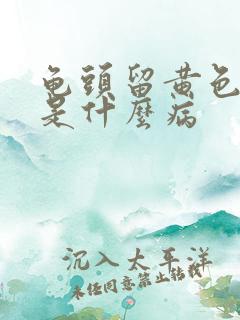 龟頭留黄色
是什麼病
沉入太平洋
未经同意禁止转载